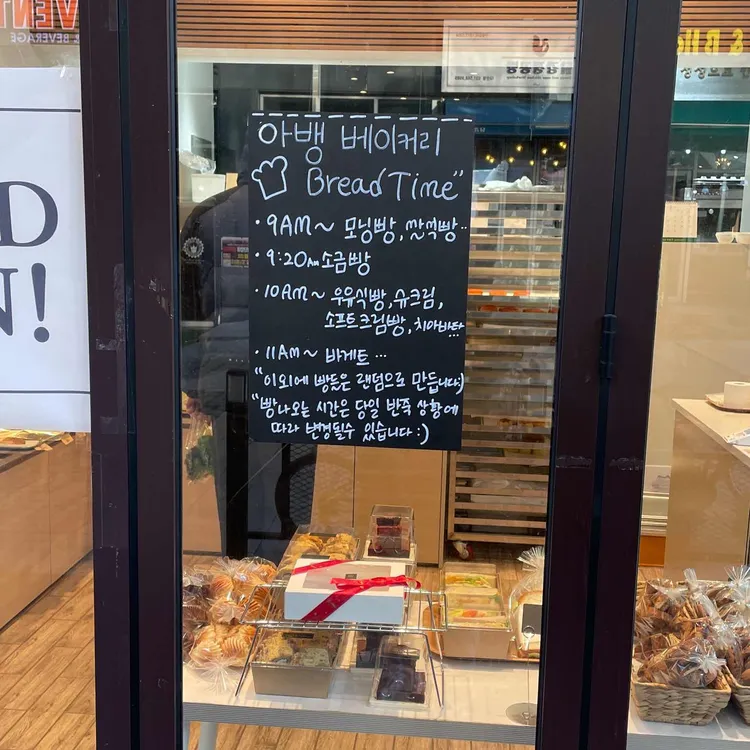 VENT
& BEVERAGE
D
N!
아뱅 베이커리
Bread Time"
· 9AM~ 모닝빵, 쌀식빵··
· 9:20AM 소금빵
· 10AM~ 우유식빵, 슈크림,
소프트크림빵, 치아바타
· 11AM~ 바게트 ···
"이외에 빵들은 랜덤으로 만듭니다:)
"빵나오는 시간은 당일 반죽 상황에
따라 변경될수 있습니다 :)